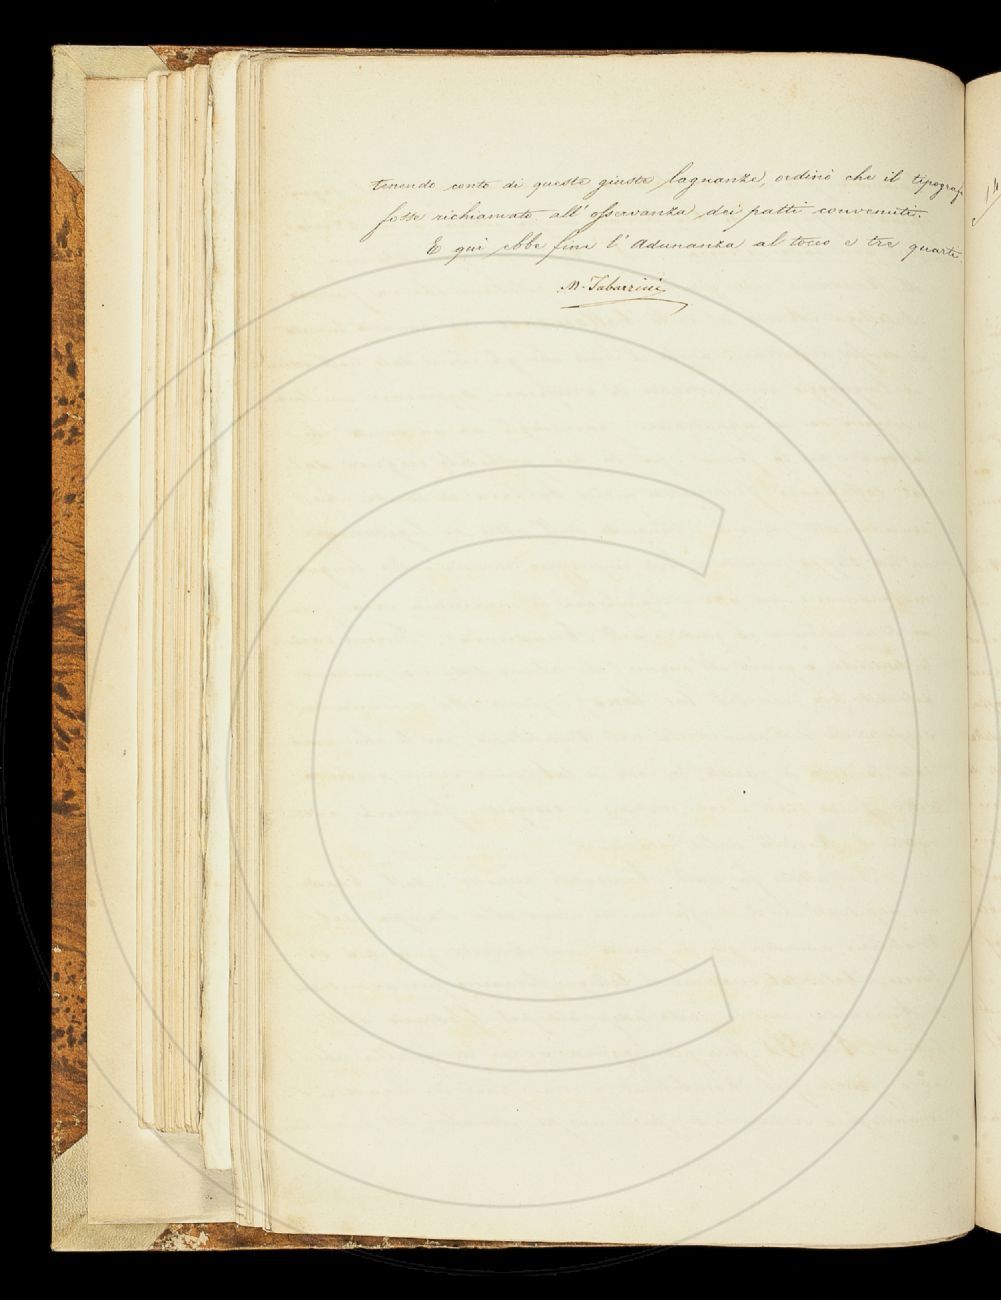 tenendo conto di queste giuste lagnanze, ordinò che il tipografo
fosse richiamato all'osservanza dei patti convenuti.
E qui ebbe fine l'Adunanza al tocco e tre quarti.
M. Tabarrini